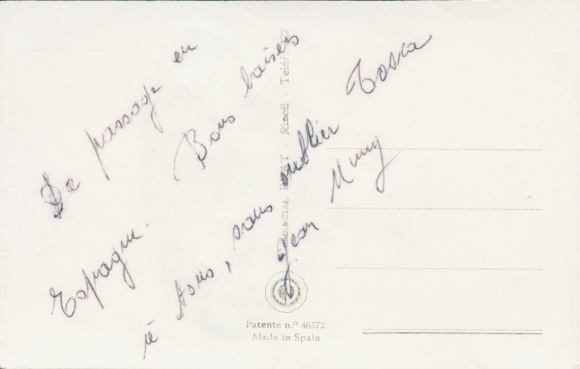 De passage en
Espagne. Bons baisers
à tous, sans oublier Tosca
Jean
Patente n.º 46372
Made in Spain